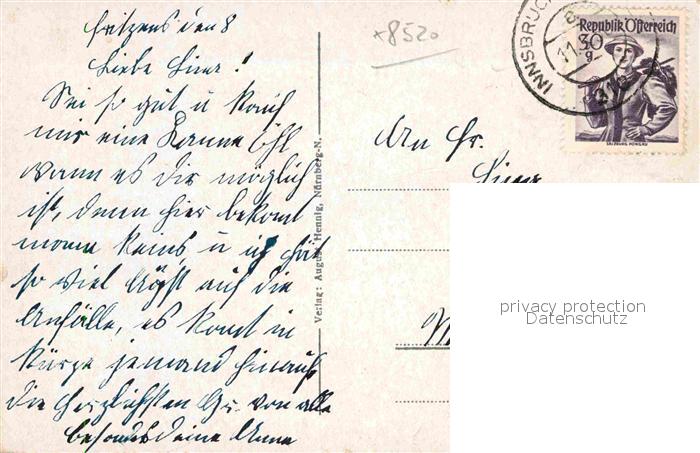 Fritzens den 8
Liebe
Sei so gut u kauf
mir eine Kanne Öhl
wann es dir möglich
ist, denn hier bekomt
mann keins, u ich hab
so viel Angst auf die
Anfälle, es komt in
Kürze jemand hinauf
die herzlichsten Gr. von alle
besonders deine Anna
×8520
An Fr.
Verlag: August Hennig, Nürnberg-N.
INNSBRUCK
Republik Österreich
30
g
SALZBURG PONGAU
privacy protection
Datenschutz